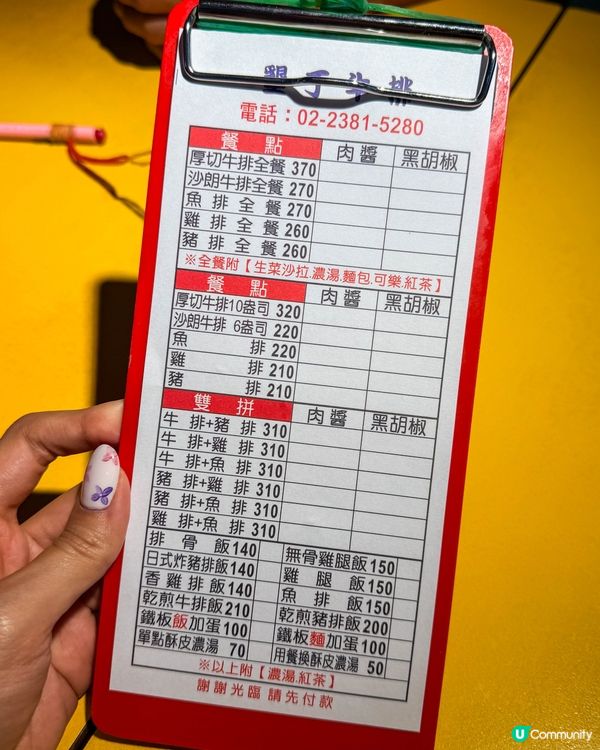 墾丁牛排
電話：02-2381-5280
餐點 肉醬 黑胡椒
厚切牛排全餐 370
沙朗牛排全餐 270
魚排全餐 270
雞排全餐 260
豬排全餐 260
※全餐附【生菜沙拉.濃湯.麵包.可樂.紅茶】
餐點 肉醬 黑胡椒
厚切牛排10盎司 320
沙朗牛排 6盎司 220
魚排 220
雞排 210
豬排 210
雙拼 肉醬 黑胡椒
牛排+豬排 310
牛排+雞排 310
牛排+魚排 310
豬排+雞排 310
豬排+魚排 310
雞排+魚排 310
排骨飯 140 無骨雞腿飯 150
日式炸豬排飯 140 雞腿飯 150
香雞排飯 140 魚排飯 150
乾煎牛排飯 210 乾煎豬排飯 200
鐵板飯加蛋 100 鐵板麵加蛋 100
單點酥皮濃湯 70 用餐換酥皮濃湯 50
※以上附【濃湯.紅茶】
謝謝光臨 請先付款
U Community